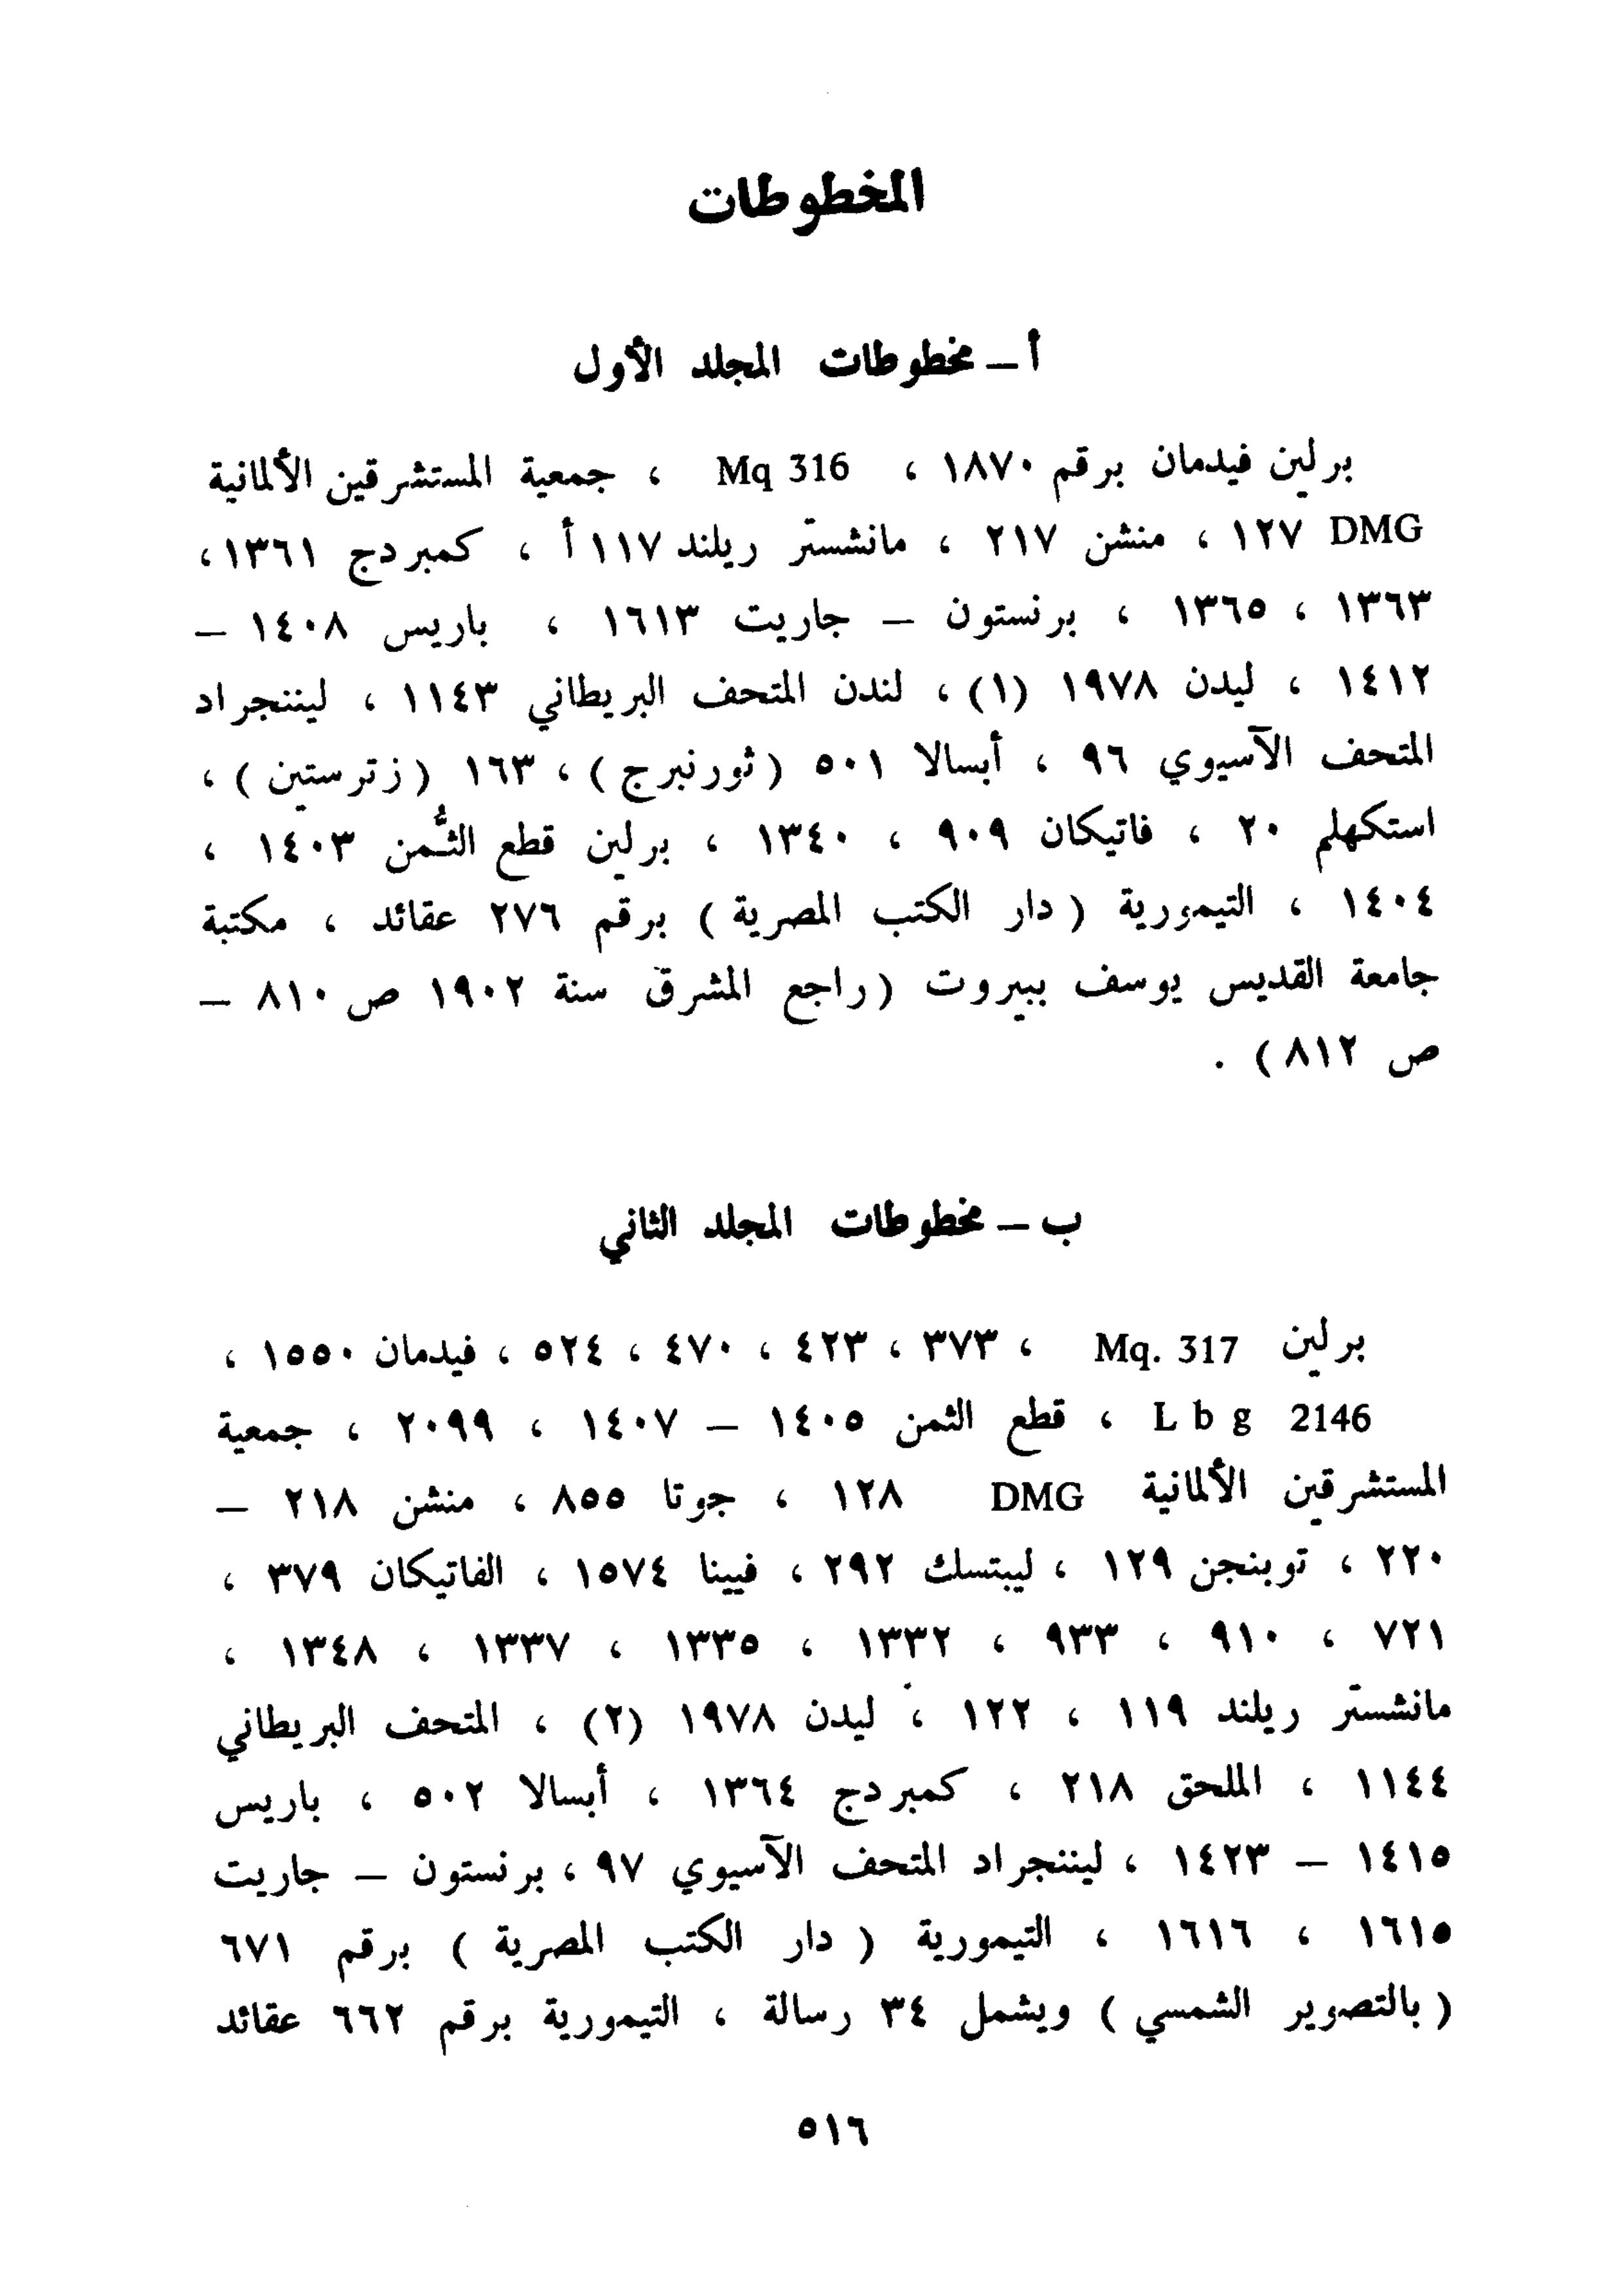 المخطوطات
أ – مخطوطات المجلد الأول
برلين فيدمان برقم ١٨٧٠ ، Mq 316 ، جمعية المستشرقين الألمانية
DMG ١٢٧ ، منشن ٢١٧ ، مانشستر ريلند ١١٧ أ ، كمبردج ١٣٦١،
١٣٦٣ ، ١٣٦٥ ، برنستون – جاريت ١٦١٣ ، باريس ١٤٠٨ –
١٤١٢ ، ليدن ١٩٧٨ (١) ، لندن المتحف البريطاني ١١٤٣ ، ليننجراد
المتحف الآسيوي ٩٦ ، أبسالا ٥٠١ ( ثورنبرج ) ، ١٦٣ ( زترستين ) ،
استكهلم ٢٠ ، فاتيكان ٩٠٩ ، ١٣٤٠ ، برلين قطع الثُّمن ١٤٠٣ ،
١٤٠٤ ، التيمورية ( دار الكتب المصرية ) برقم ٢٧٦ عقائد ، مكتبة
جامعة القديس يوسف ببيروت ( راجع المشرق سنة ١٩٠٢ ص ٨١٠ –
ص ٨١٢ ) .
ب – مخطوطات المجلد الثاني
برلين Mq. 317 ، ٣٧٣ ، ٤٢٣ ، ٤٧٠ ، ٥٢٤ ، فيدمان ١٥٥٠ ،
Lbg 2146 ، قطع الثمن ١٤٠٥ – ١٤٠٧ ، ٢٠٩٩ ، جمعية
المستشرقين الألمانية DMG ١٢٨ ، جوتا ٨٥٥ ، منشن ٢١٨ –
٢٢٠ ، توبنجن ١٢٩ ، ليبتسك ٢٩٢ ، فيينا ١٥٧٤ ، الفاتيكان ٣٧٩ ،
٧٢١ ، ٩١٠ ، ٩٣٣ ، ١٣٣٢ ، ١٣٣٥ ، ١٣٣٧ ، ١٣٤٨ ،
مانشستر ريلند ١١٩ ، ١٢٢ ، ليدن ١٩٧٨ (٢) ، المتحف البريطاني
١١٤٤ ، الملحق ٢١٨ ، كمبردج ١٣٦٤ ، أبسالا ٥٠٢ ، باريس
١٤١٥ – ١٤٢٣ ، ليننجراد المتحف الآسيوي ٩٧ ، برنستون – جاريت
١٦١٥ ، ١٦١٦ ، التيمورية ( دار الكتب المصرية ) برقم ٦٧١
( بالتصوير الشمسي ) ويشمل ٣٤ رسالة ، التيمورية برقم ٦٦٢ عقائد
٥١٦